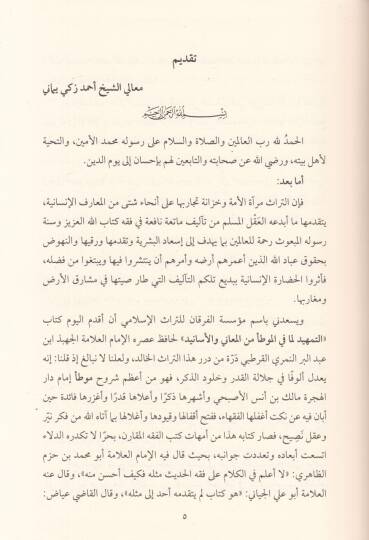 تقديم
معالي الشيخ أحمد زكي يماني
بسم الله الرحمن الرحيم
الحمدُ لله رب العالمين والصلاة والسلام على رسوله محمد الأمين، والتحية
لأهل بيته، ورضي الله عن صحابته والتابعين لهم بإحسان إلى يوم الدين.
أما بعد:
فإن التراث مرآة الأمة وخزانة تجاربها على أنحاء شتى من المعارف الإنسانية،
يتقدمها ما أبدعه العَقْل المسلم من تآليف ماتعة نافعة في فقه كتاب الله العزيز وسنة
رسوله المبعوث رحمة للعالمين بما يهدف إلى إسعاد البشرية وتقدمها ورقيها والنهوض
بحقوق عباد الله الذين أعمرهم أرضه وأمرهم أن ينتشروا فيها ويبتغوا من فضله،
فأثروا الحضارة الإنسانية ببديع تلكم التآليف التي طار صيتها في مشارق الأرض
ومغاربها.
ويسعدني باسم مؤسسة الفرقان للتراث الإسلامي أن أقدم اليوم كتاب
«التمهيد لما في الموطأ من المعاني والأسانيد» لحافظ عصره الإمام العلامة الجهبذ ابن
عبد البر النمري القرطبي دُرّة من درر هذا التراث الخالد، ولعلنا لا نبالغ إذ قلنا: إنه
يعدل ألوفًا في جلالة القدر وخلود الذكر، فهو من أعظم شروح موطأ إمام دار
الهجرة مالك بن أنس الأصبحي وأشهرها ذكرًا وأعلاها قدرًا وأغزرها فائدة حين
أبان فيه عن نكت أغفلها الفقهاء، ففتح أقفالها وقيودها وأغلالها بما آتاه الله من فكر نيّر
وعقل نَصِيح، فصار كتابه هذا من أمهات كتب الفقه المقارن، بحرًا لا تكدره الدلاء
اتسعت أبعاده وتعددت جوانبه، بحيث قال فيه الإمام العلامة أبو محمد بن حزم
الظاهري: «لا أعلم في الكلام على فقه الحديث مثله فكيف أحسن منه»، وقال عنه
العلامة أبو علي الجياني: «هو كتاب لم يتقدمه أحد إلى مثله»، وقال القاضي عياض:
٥